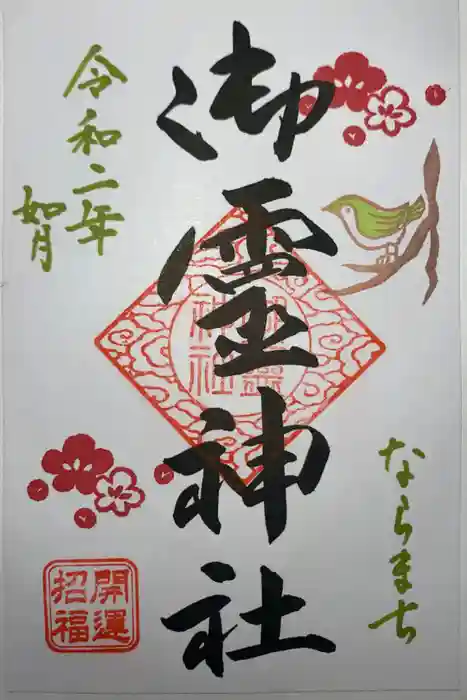 ならまち
御霊神社
令和二年
如月
御靈
神社
開運
招福